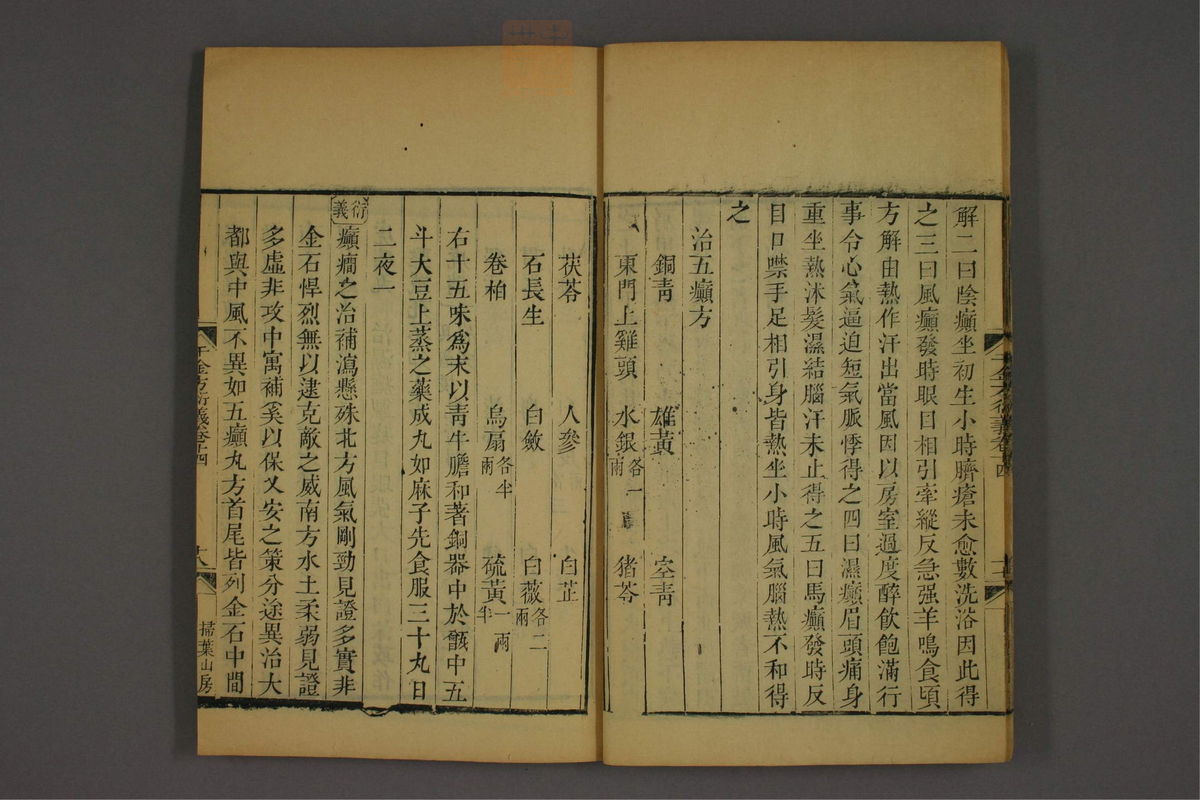 解二曰陰癲坐初生小時臍瘡未愈數洗浴因此得
之三曰風癲發時眼目相引牽縱反急强羊鳴食頃
方解由熱作汗出當風因以房室過度醉飲飽滿行
事令心氣逼迫短氣脈悸得之四曰濕癲眉頭痛身
重坐熱沐髮濕結腦汗未止得之五曰馬癲發時反
目口噤手足相引身皆熱坐小時風氣腦熱不和得
之
治五癲方
銅青 雄黃 空青
東門上雞頭 水銀各一兩 猪苓
茯苓 人參 白芷
石長生 白斂 白薇各二兩
卷柏 烏扇各半兩 硫黃一兩半
右十五味爲末以青牛膽和著銅器中於甑中五
斗大豆上蒸之藥成丸如麻子先食服三十丸日
二夜一
衍義
癲癇之治補瀉懸殊北方風氣剛勁見證多實非
金石悍烈無以逮克敵之威南方水土柔弱見證
多虛非攻中寓補奚以保乂安之策分途異治大
都與中風不異如五癲丸方首尾皆列金石中間
千金方衍義卷十四
十八
掃葉山房